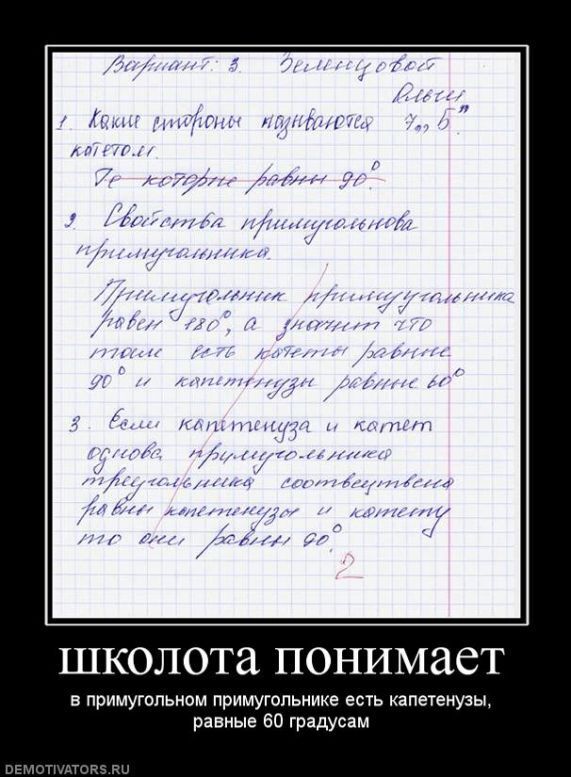 Вариант: 3. Земенцовой
Ольги
1. Какие стороны называются 7 „Б"
котетом.
Те которые равны 90°.
2. Свойства примугольнова
примугольника.
Примугольник примугольника
равен 180°, а значит что
там есть катеты равные
90° и капетенузы равные 60°
3. Если капетенуза и катет
однова примугольника
треугольника соответственно
равны капетенузы и катету
то они равны 90°.
2
школота понимает
в примугольном примугольнике есть капетенузы,
равные 60 градусам
DEMOTIVATORS.RU